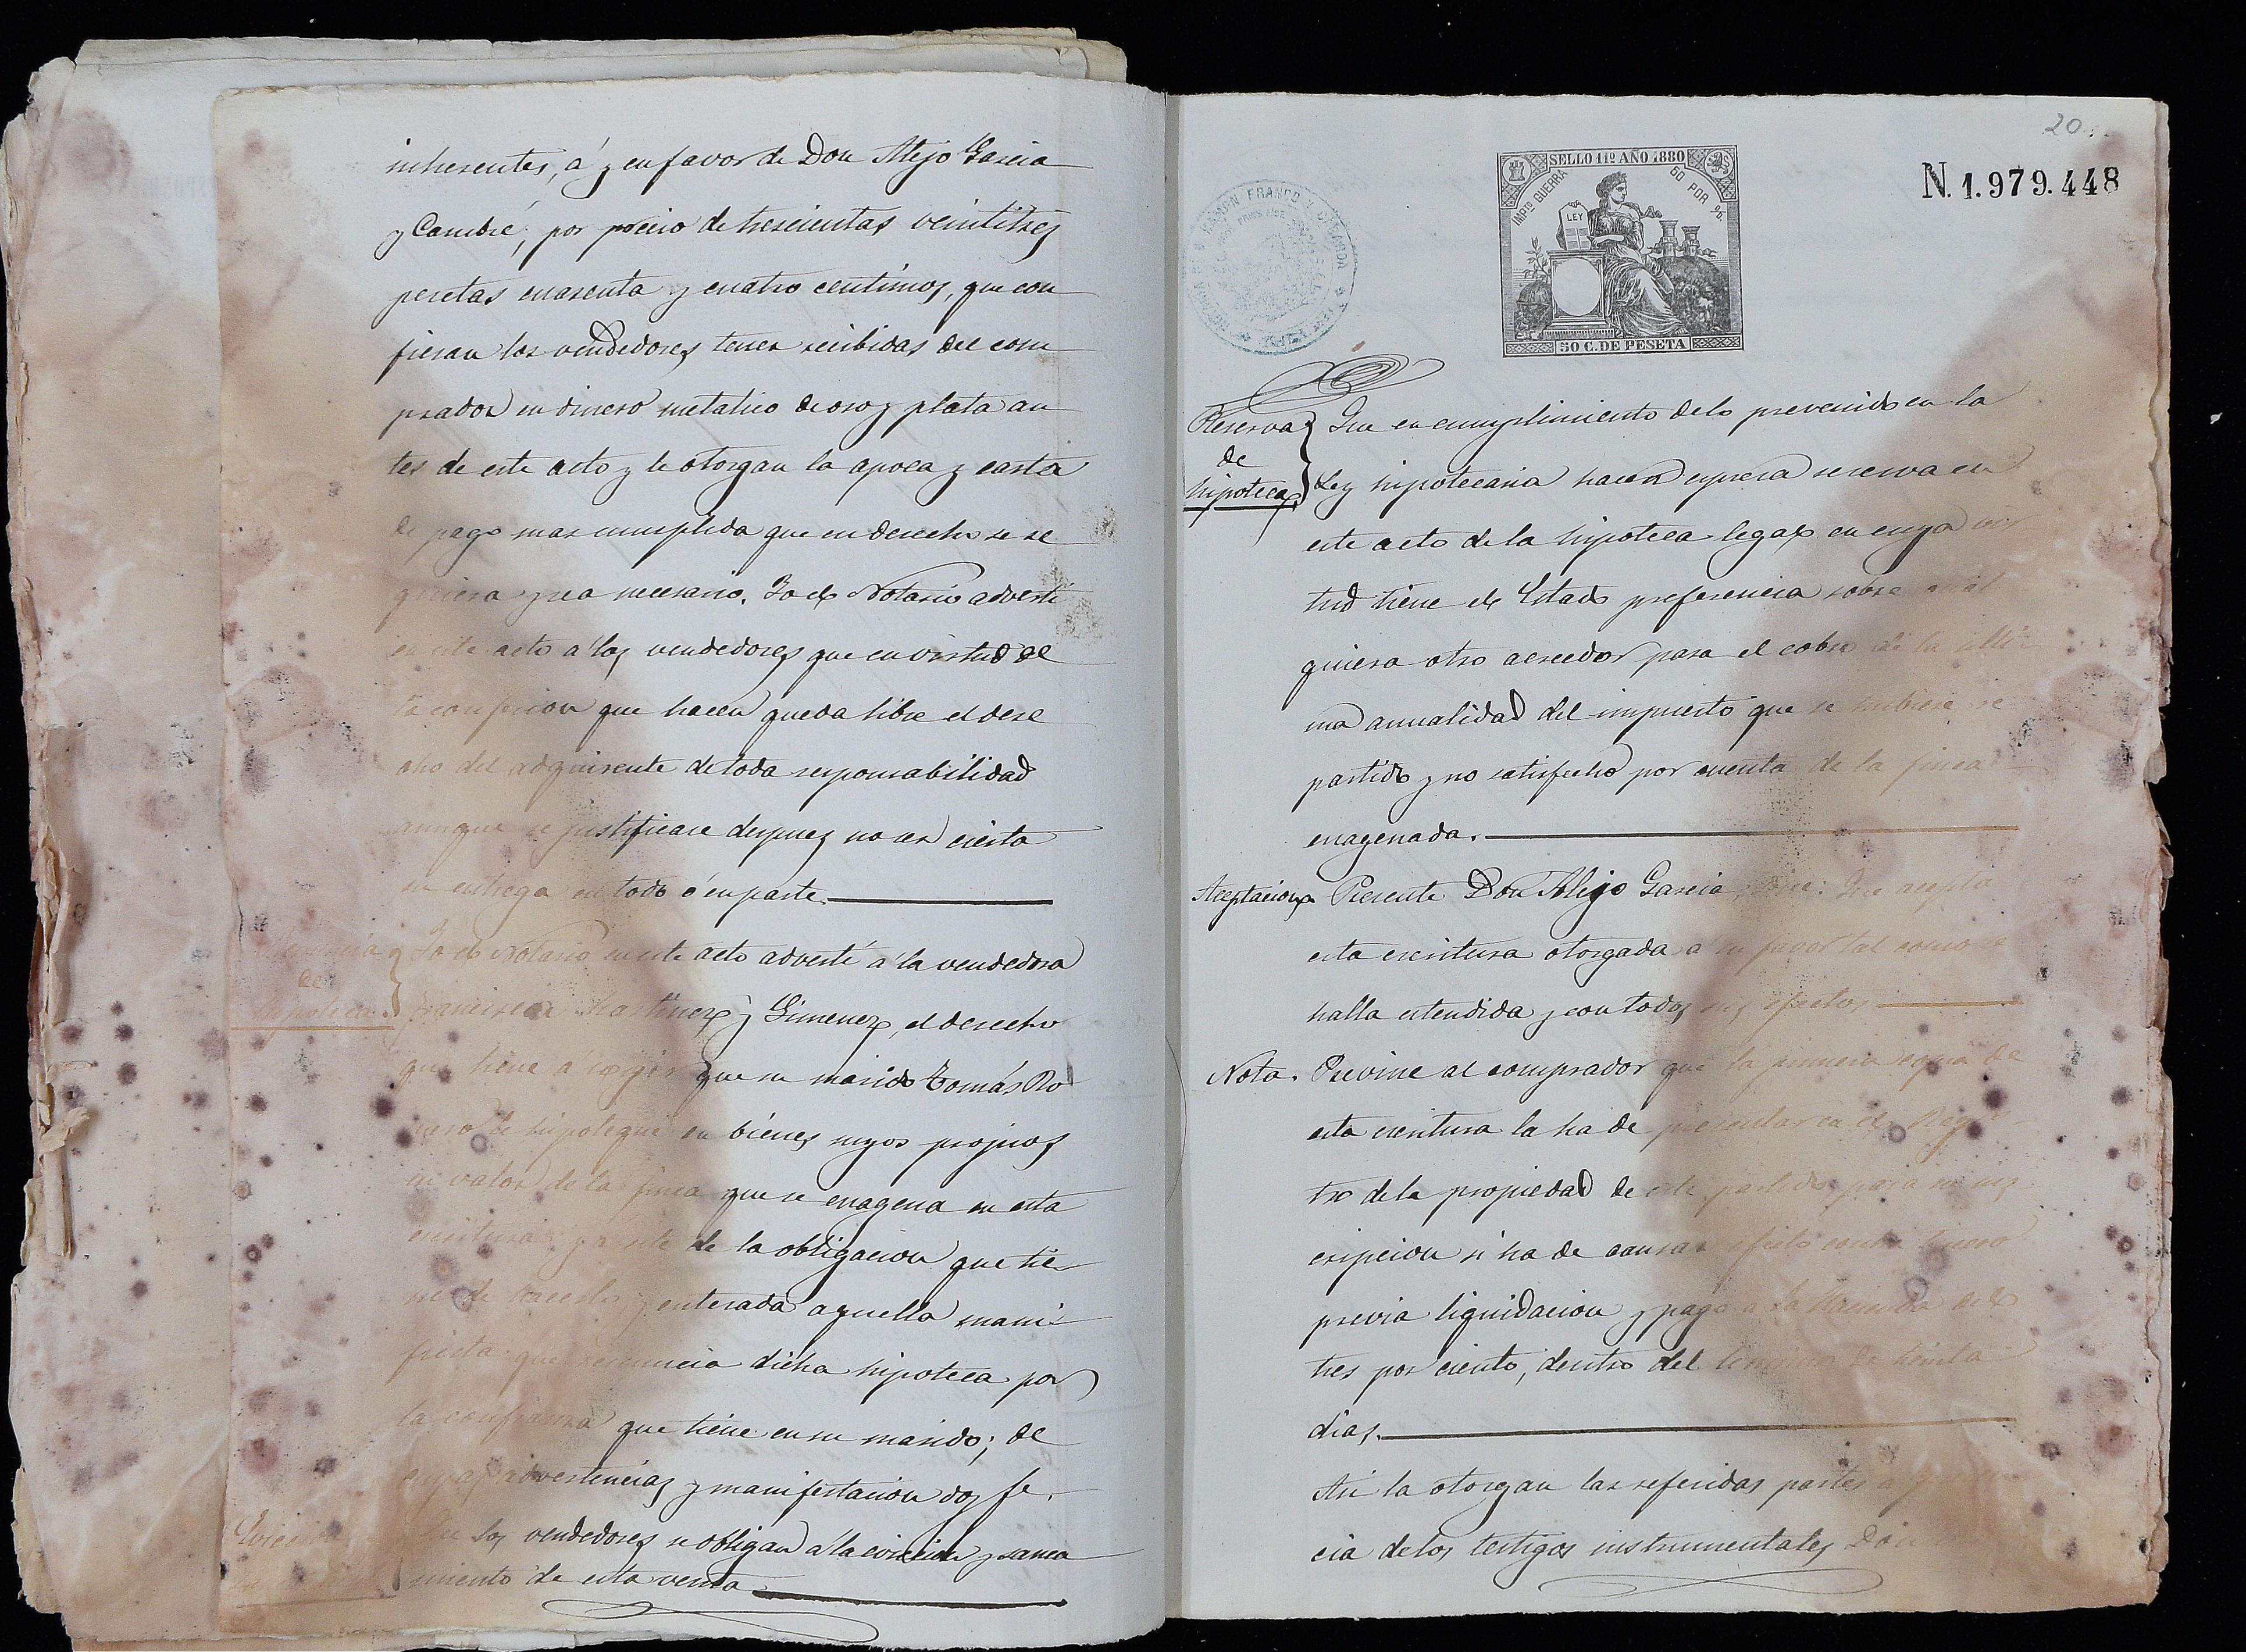 inherentes, á y en favor de Don Alejo Garcia
y Cambré, por precio de trescientas veintitres
pesetas cuarenta y cuatro centimos, que con
fiesan los vendedores tener recibidas del com
prador en dinero metalico de oro y plata an
tes de este acto y le otorgan la apoca y carta
de pago mas cumplida que en derecho se re
quiera y sea necesario. Yo el Notario adverti
en este acto a los vendedores que en virtud de
la confesion que hacen queda libre el dere
cho del adquirente de toda responsabilidad
aunque se justificare despues no ser cierta
su entrega en todo ó en parte.
de
hipoteca
Yo el Notario en este acto adverti á la vendedora
Francisca Martinez y Gimenez, el derecho
que tiene á exigir que su marido Tomás Ro
mero le hipoteque en bienes suyos propios
el valor de la finca que se enagena en esta
escritura, y a este de la obligacion que tie
ne de hacerlo y enterada aquella mani
fiesta que renuncia dicha hipoteca por
la confianza que tiene en su marido; de
cuyas advertencias y manifestacion doy fe.
Eviccion
Que los vendedores se obligan á la eviccion y sanea
miento de esta venta
20
SELLO 11º AÑO 1880
IMPTO GUERRA
50 POR %
LEY
50 C. DE PESETA
N. 1.979.448
RAMON FRANCO Y
Reserva
de
hipoteca
Que en cumplimiento de lo prevenido en la
Ley hipotecaria hacen espresa reserva en
este acto de la hipoteca legal en cuya vir
tud tiene el Estado preferencia sobre cual
quiera otro acreedor para el cobro de la ulti
ma anualidad del impuesto que se hubiese re
partido y no satisfecho por cuenta de la finca
enagenada.
Aceptacion
Presente Don Alejo Garcia, dice: Que acepta
esta escritura otorgada a su favor tal como se
halla estendida y con todos sus efectos
Nota.
Previne al comprador que la primera copia de
esta escritura la ha de presentar en el Regis
tro de la propiedad de este partido para su ins
cripcion si ha de causar efecto contra tercero
previa liquidacion y pago a la Hacienda del
tres por ciento, dentro del termino de treinta
dias.
Asi la otorgan las referidas partes a
cia de los testigos instrumentales Don